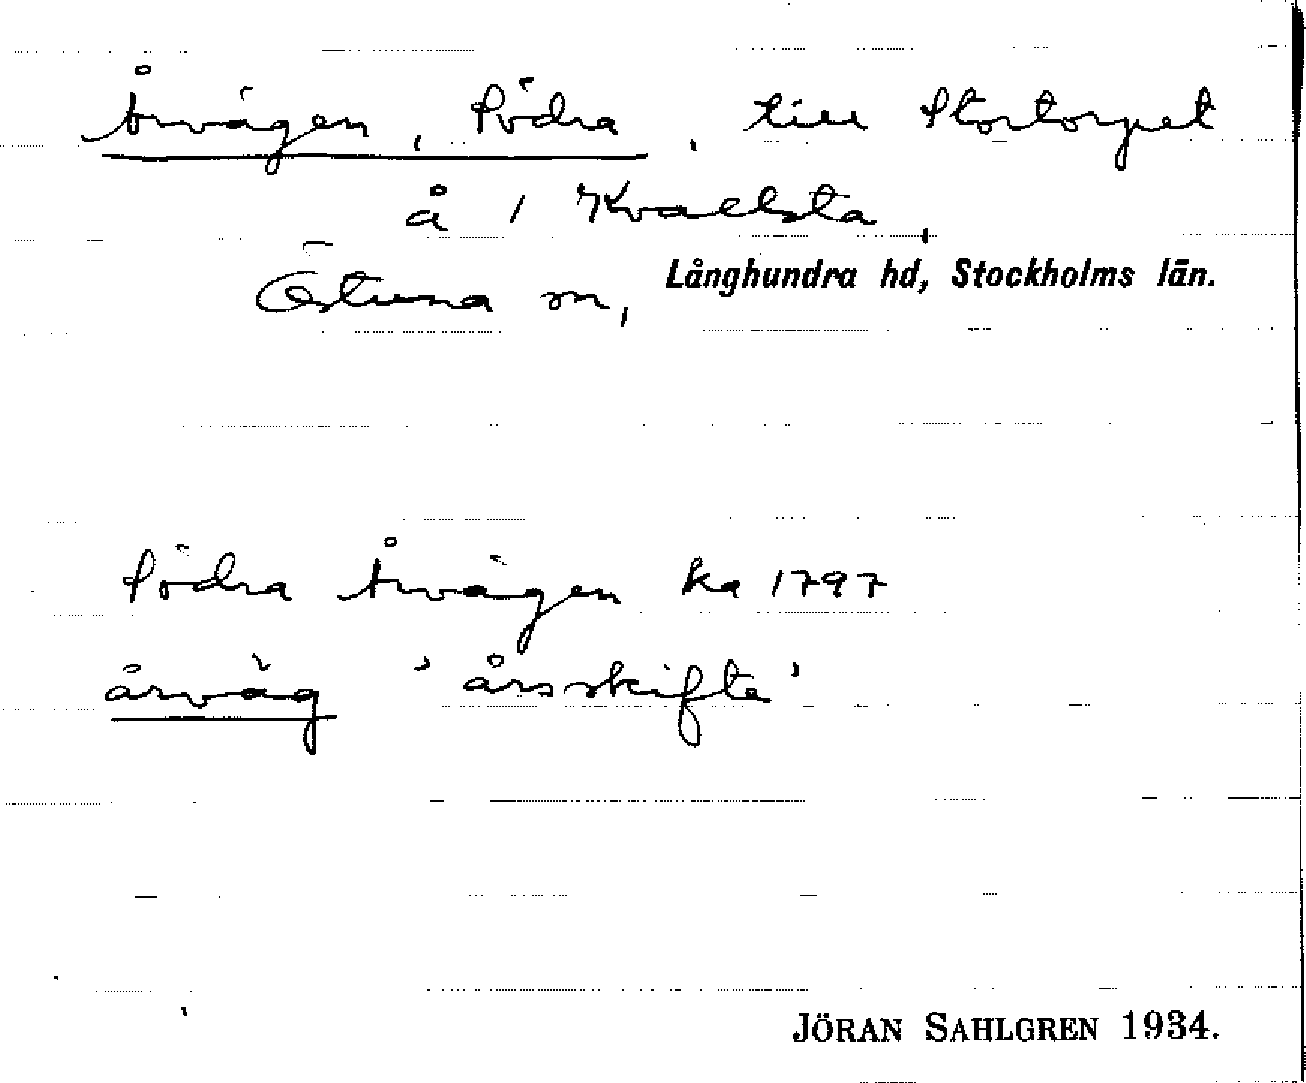 Årvägen, Södra, till Stortorpet
å 1 Kvallsta,
Östuna sn, Långhundra hd, Stockholms län.
Södra Årvägen ka 1797
årväg 'årsskifte'
JÖRAN SAHLGREN 1934.